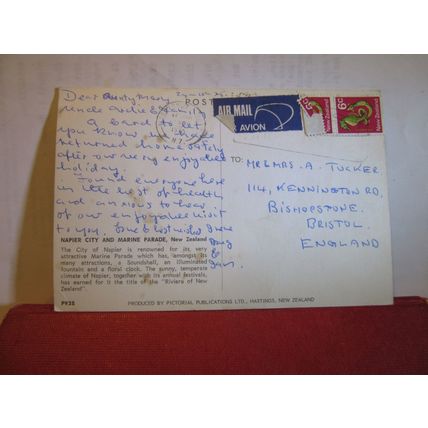 Dear Aunty Mary
Uncle & Family
POST
AIR MAIL
AVION
5c
New Zealand
6c
New Zealand
A card to let
you know we have
returned home safely
after our very enjoyable
holiday.
Found everyone here
in the best of health
and anxious to hear
of our enjoyable visit
to you. Love & best wishes
TO: MR & MRS. A. TUCKER
114, KENNINGTON RD,
BISHOPSTONE.
BRISTOL.
ENGLAND
NAPIER CITY AND MARINE PARADE, New Zealand
The City of Napier is renowned for its very
attractive Marine Parade which has, amongst its
many attractions, a Soundshell, an illuminated
fountain and a floral clock. The sunny, temperate
climate of Napier, together with its annual festivals,
has earned for it the title of the "Riviera of New
Zealand".
PV28
PRODUCED BY PICTORIAL PUBLICATIONS LTD., HASTINGS, NEW ZEALAND